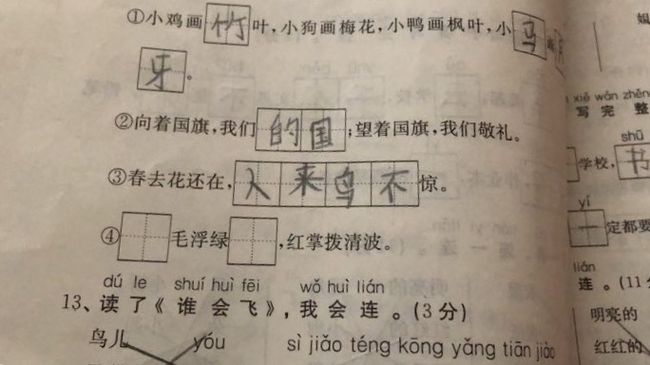 ①小鸡画竹叶，小狗画梅花，小鸭画枫叶，小马画
牙。
②向着国旗，我们的国；望着国旗，我们敬礼。
③春去花还在，入来鸟不惊。
④毛浮绿，红掌拨清波。
dú le shuí huì fēi wǒ huì lián
13、读了《谁会飞》，我会连。(3分)
鸟儿 yóu sì jiǎo téng kōng yǎng tiān jiào
xiě wán zhěng
写完整
shū
学校，书
yí
一定都要
lián
连。(11
明亮的
红红的